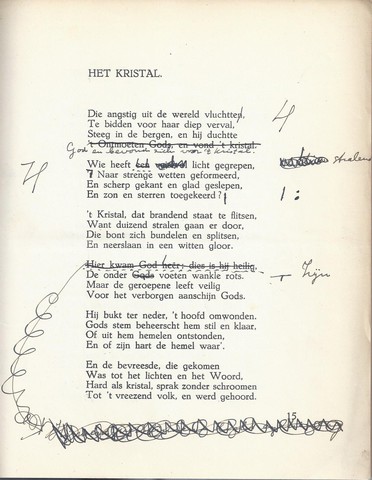 HET KRISTAL.
Die angstig uit de wereld vluchtten
Te bidden voor haar diep verval,
Steeg in de bergen, en hij duchtte
't Ontmoeten Gods, en vond 't kristal.
God en bevond zich voor 't kristal.
Wie heeft licht gegrepen,
Naar strenge wetten geformeerd,
En scherp gekant en glad geslepen,
En zon en sterren toegekeerd?
't Kristal, dat brandend staat te flitsen,
Want duizend stralen gaan er door,
Die bont zich bundelen en splitsen,
En neerslaan in een witten gloor.
Hier kwam God heer; dies is hij heilig
De onder Gods voeten wankle rots.
Zijn
Maar de geroepene leeft veilig
Voor het verborgen aanschijn Gods.
Hij bukt ter neder, 't hoofd omwonden.
Gods stem beheerscht hem stil en klaar,
Of uit hem hemelen ontstonden,
En of zijn hart de hemel waar'.
En de bevreesde, die gekomen
Was tot het lichten en het Woord,
Hard als kristal, sprak zonder schroomen
Tot 't vreezend volk, en werd gehoord.
15